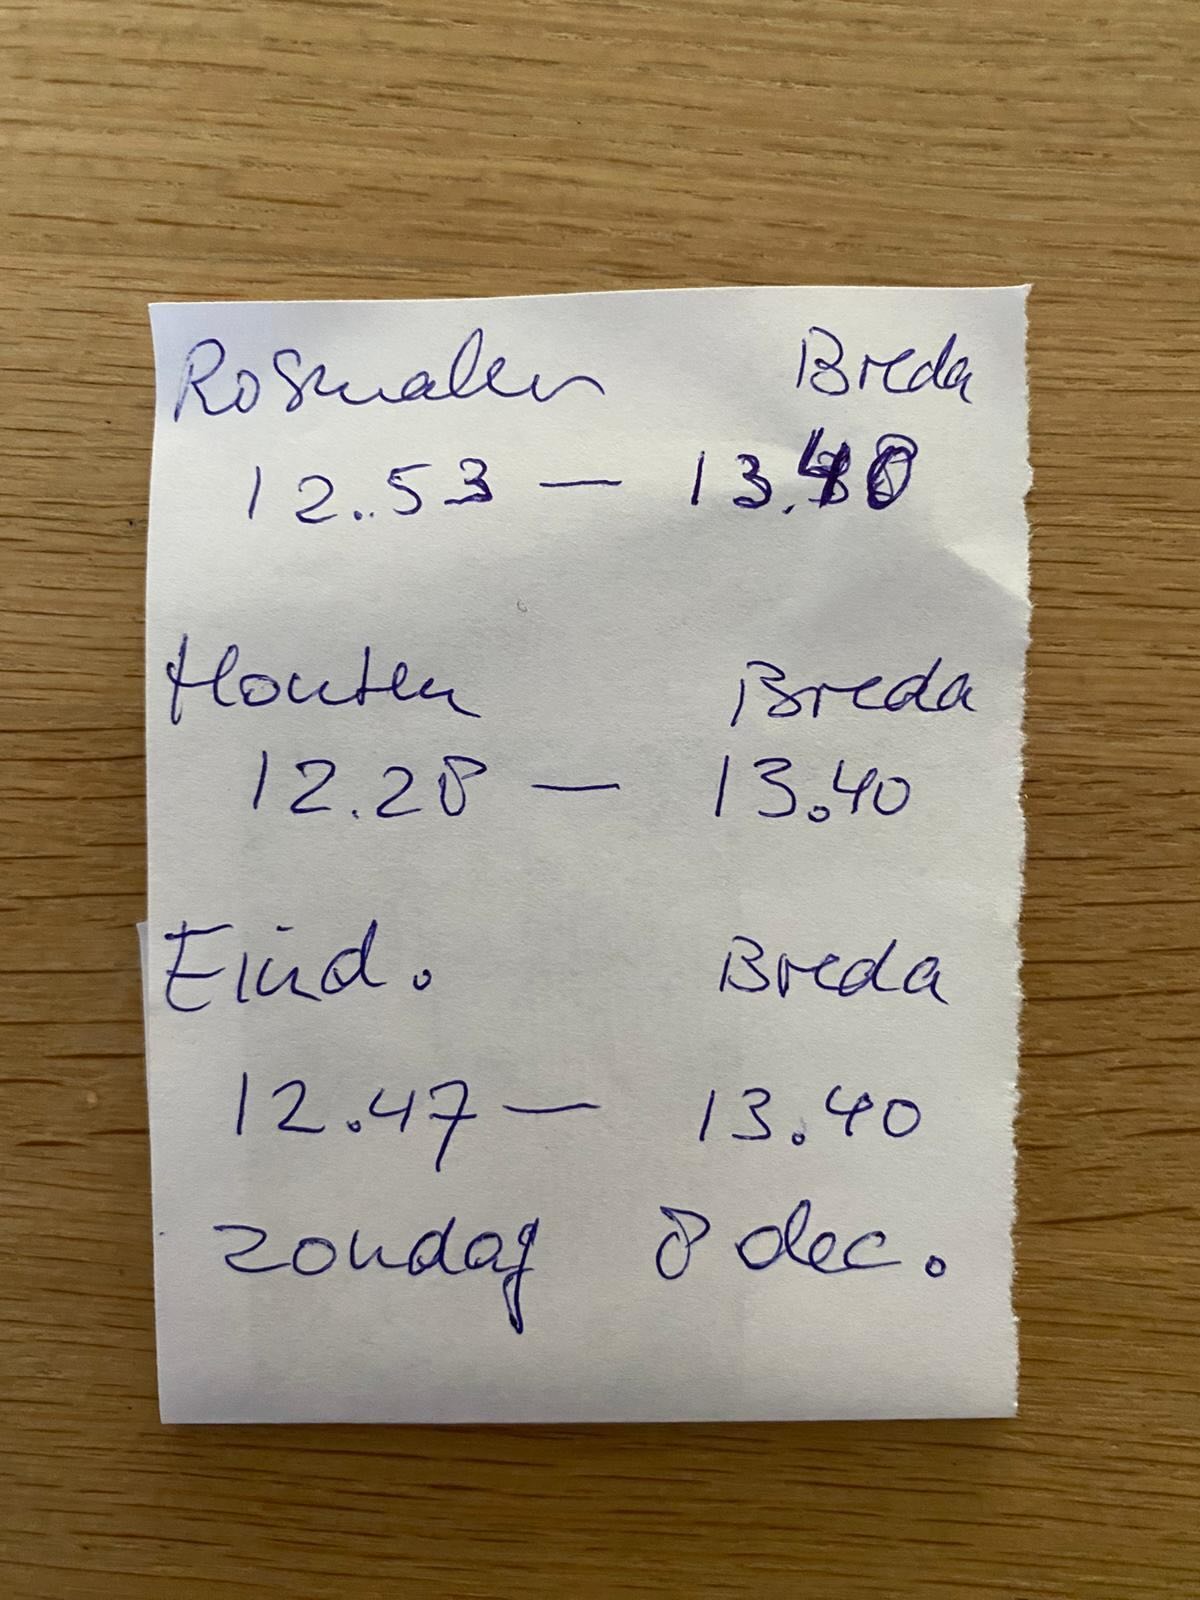 Rosmalen Breda
12.53 — 13.40
Houten Breda
12.28 — 13.40
Eind. Breda
12.47 — 13.40
zondag 8 dec.